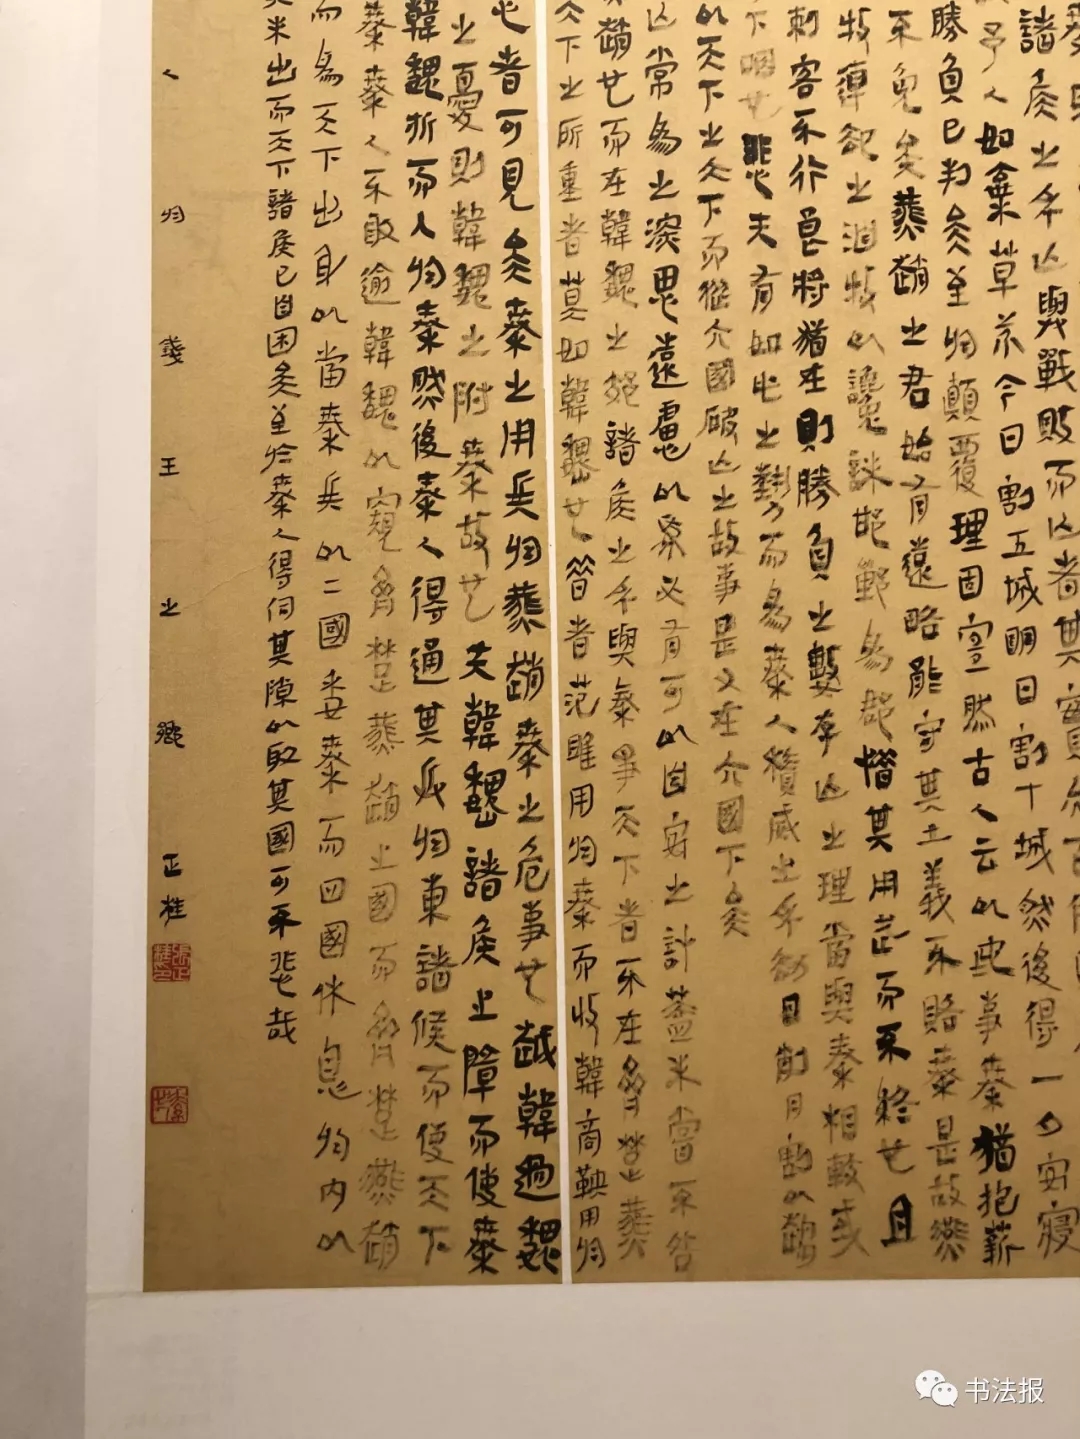 諸侯之所亡與戰敗而亡者其實亦百倍
予人如棄草芥今日割五城明日割十城然後得一夕安寢
勝負已判矣至於顛覆理固宜然古人云以此事秦猶抱薪
不免矣燕趙之君始有遠略能守其土義不賂秦是故燕
牧連卻之洎牧以讒誅邯鄲為郡惜其用武而不終也且
刺客不行良將猶在則勝負之數存亡之理當與秦相較或
下也悲夫有如此之勢而為秦人積威之所劫日削月割以趨
以天下之大下而從六國破亡之故事是又在六國下矣
亡常為之深思遠慮以為必有可以自安之計蓋未嘗不咎
趙也而在韓魏之郊諸侯之所與秦爭天下者不在齊楚燕
天下之所重者莫如韓魏也昔者范雎用於秦而收韓商鞅用於
心者可見矣秦之用兵於燕趙秦之危事也越韓過魏
之憂則韓魏之附秦故也夫韓魏諸侯之障而使秦
韓魏折而入於秦然後秦人得通其兵於東諸候而使天下
秦秦人不敢逾韓魏以窺齊楚燕趙之國而齊楚燕趙
而為天下出身以當秦兵以二國委秦而四國休息於内以
未出而天下諸侯已自困矣至於秦人得伺其隙以取其國可不悲哉
於錢王之鄉正桂
书法报